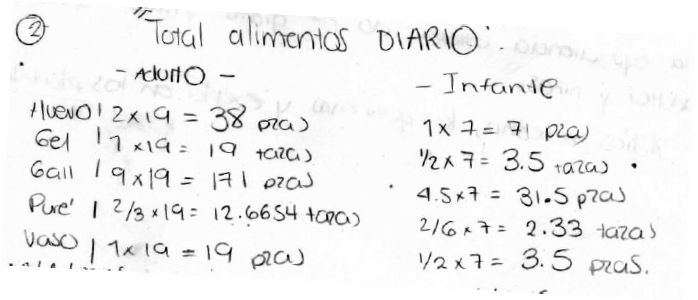 ② "Total alimentos DIARIO".
- Adulto -
Huevo | 2 x 19 = 38 pzas
Gel | 1 x 19 = 19 tazas
Gall | 9 x 19 = 171 pzas
Puré | 2/3 x 19 = 12.6654 tazas
Vaso | 1 x 19 = 19 pzas
- Infante
1 x 7 = 71 pzas
1/2 x 7 = 3.5 tazas
4.5 x 7 = 31.5 pzas
2/6 x 7 = 2.33 tazas
1/2 x 7 = 3.5 pzas.